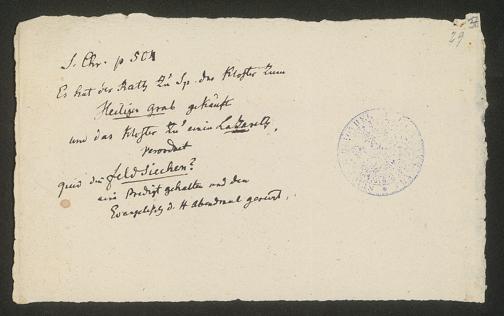 29
S. Chr. p 504
Es hat der Rath zu Sp. das Kloster zum
Heiligen Grab gekauft
und das Kloster zu einem Lazareth,
verordnet
quid die feldsiechen?
ein Predigt gehalten und den
Evangelisch d. H Abendmal gereicht.